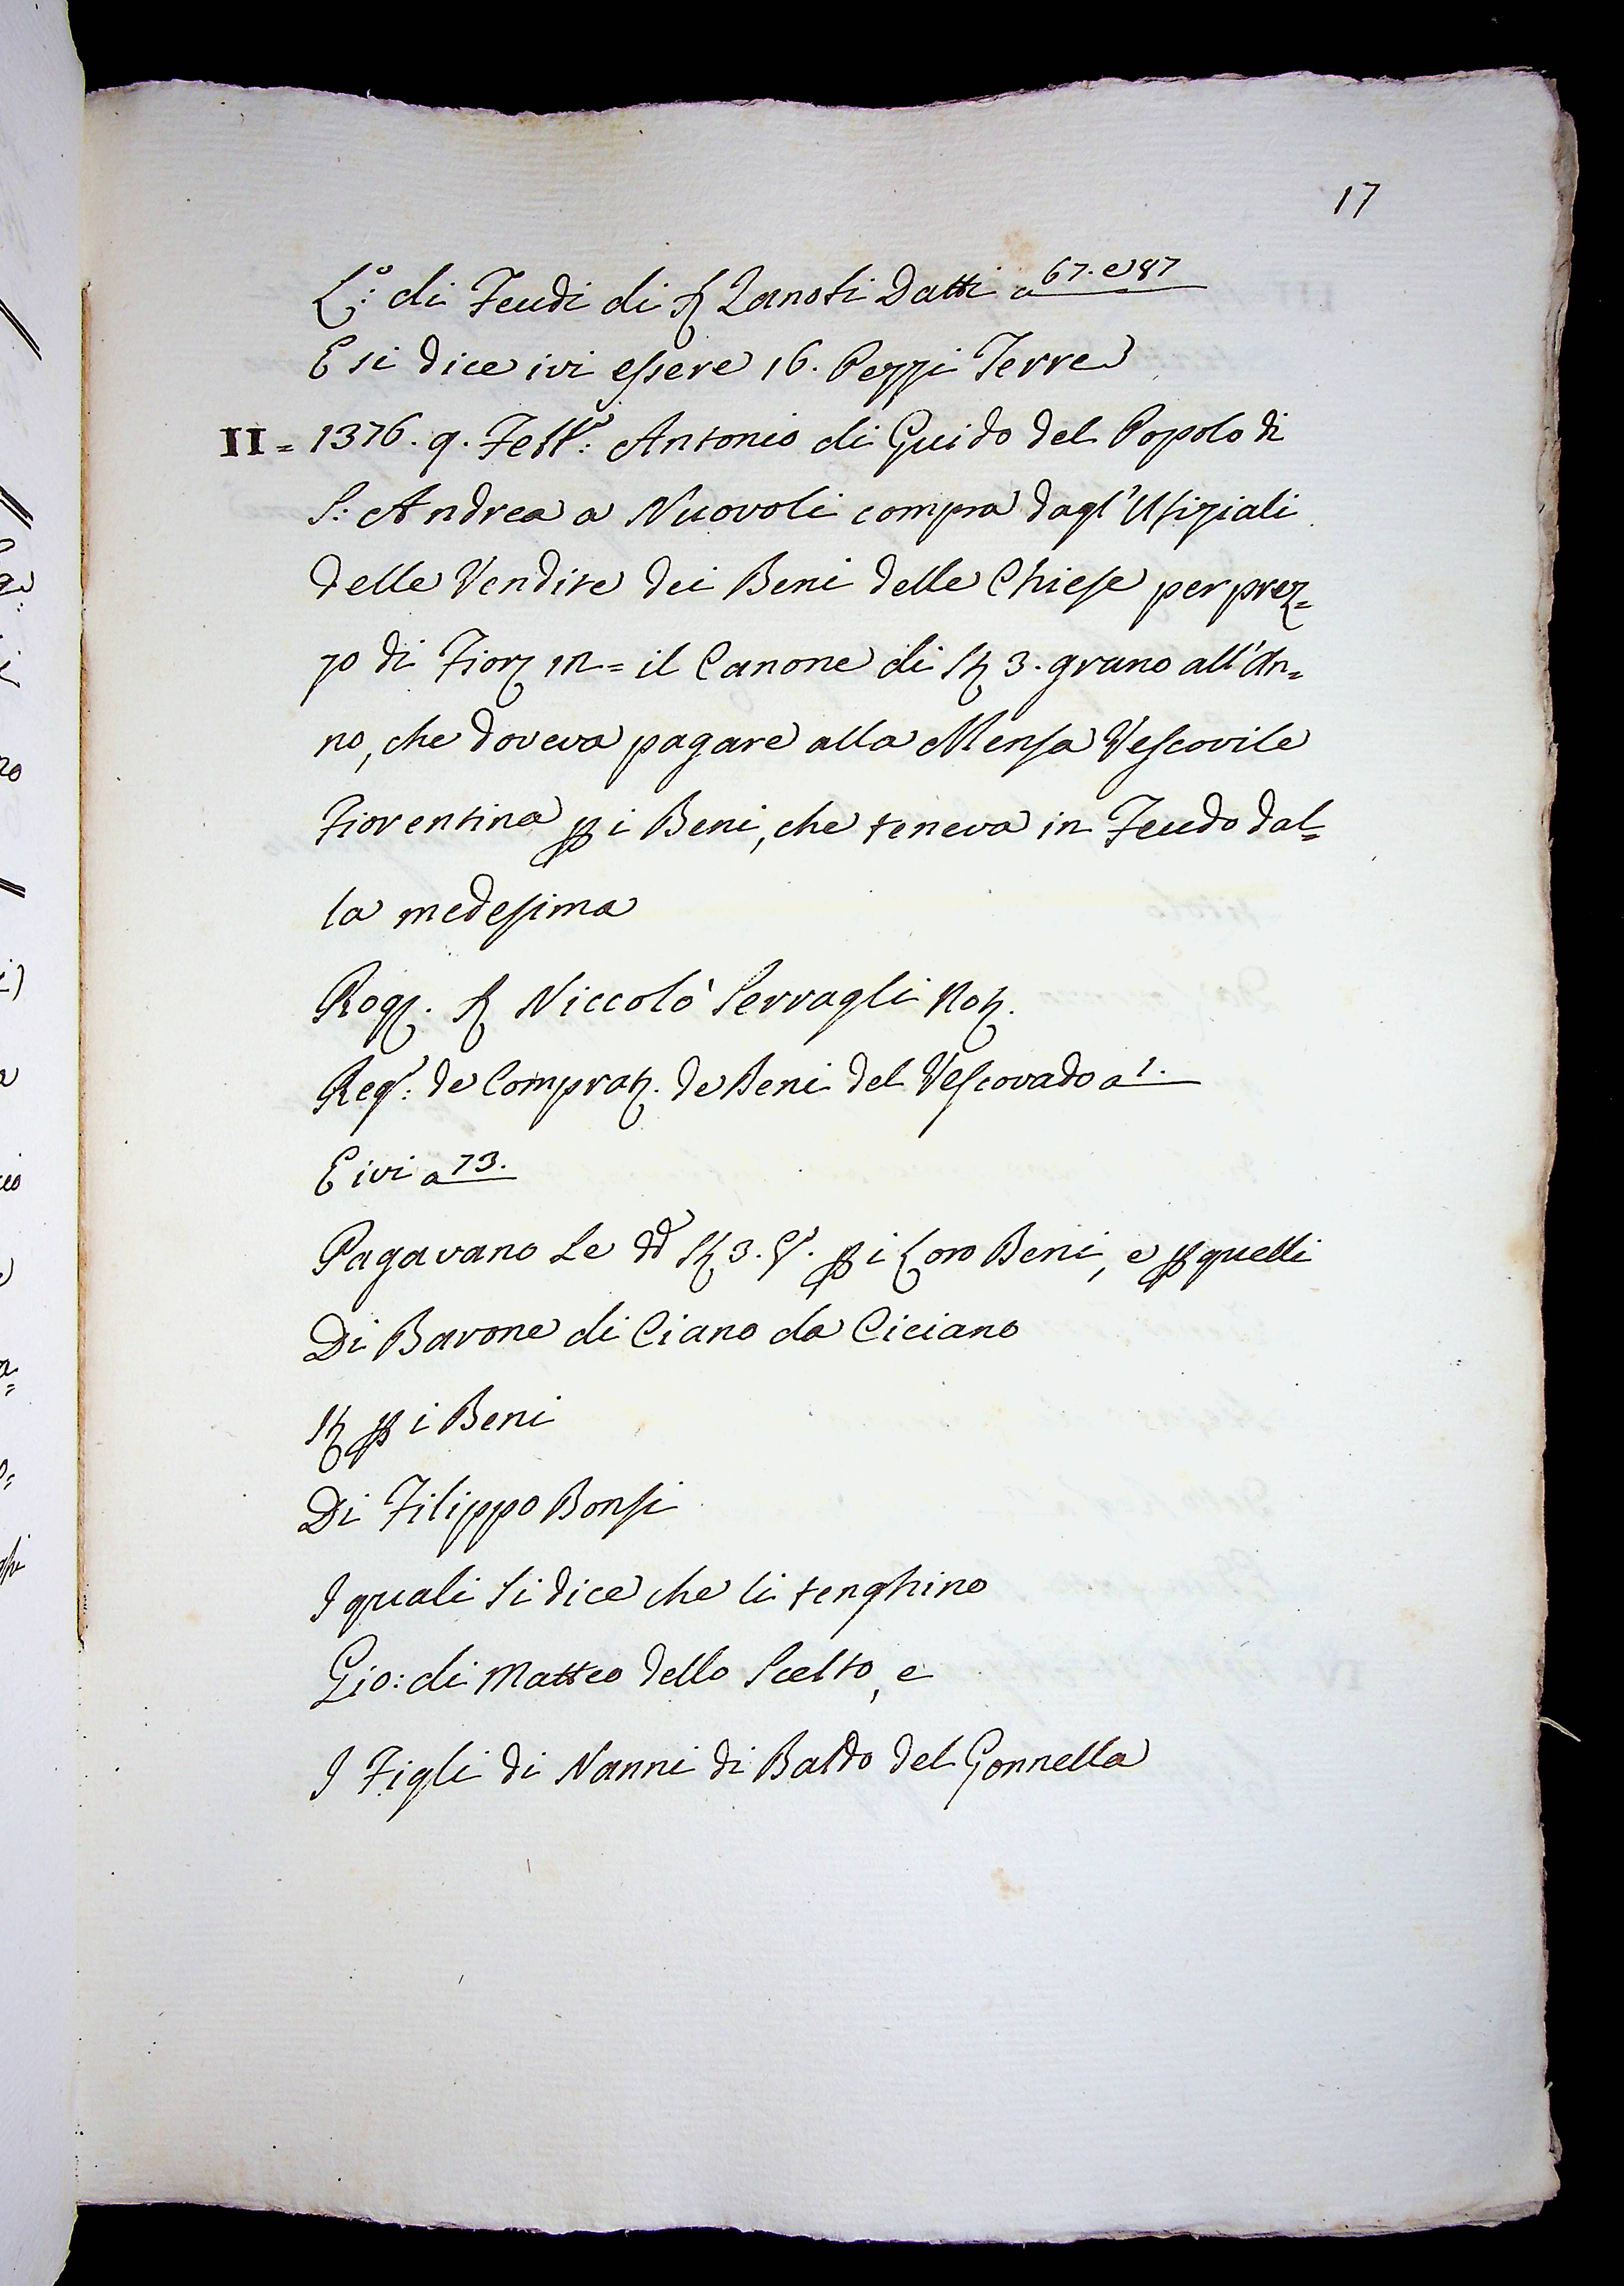 17
L.º di Feudi di S. Zanobi Datti a 67. e 87
E si dice ivi essere 16. Pezzi Terre
II = 1376. 9. Febb.º: Antonio di Guido del Popolo di
S: Andrea a Nuovoli compra dagl'Ufiziali
delle Vendite dei Beni delle Chiese per prez=
zo di Fior. 112= il Canone di St. 3. grano all'An=
no, che doveva pagare alla Mensa Vescovile
Fiorentina p i Beni, che teneva in Feudo dal=
la medesima
Rog. S. Niccolò Serragli Not.
Reg.º: de Comprat. de Beni del Vescovado a 1.
E ivi a 73.
Pagavano le dd St. 3. G.º p i loro Beni, e p quelli
Di Barone di Ciano da Ciciano
St. p i Beni
Di Filippo Bonsi
I quali si dice che li tenghino
Gio: di Matteo dello Scelto, e
I Figli di Nanni di Baldo del Gonnella